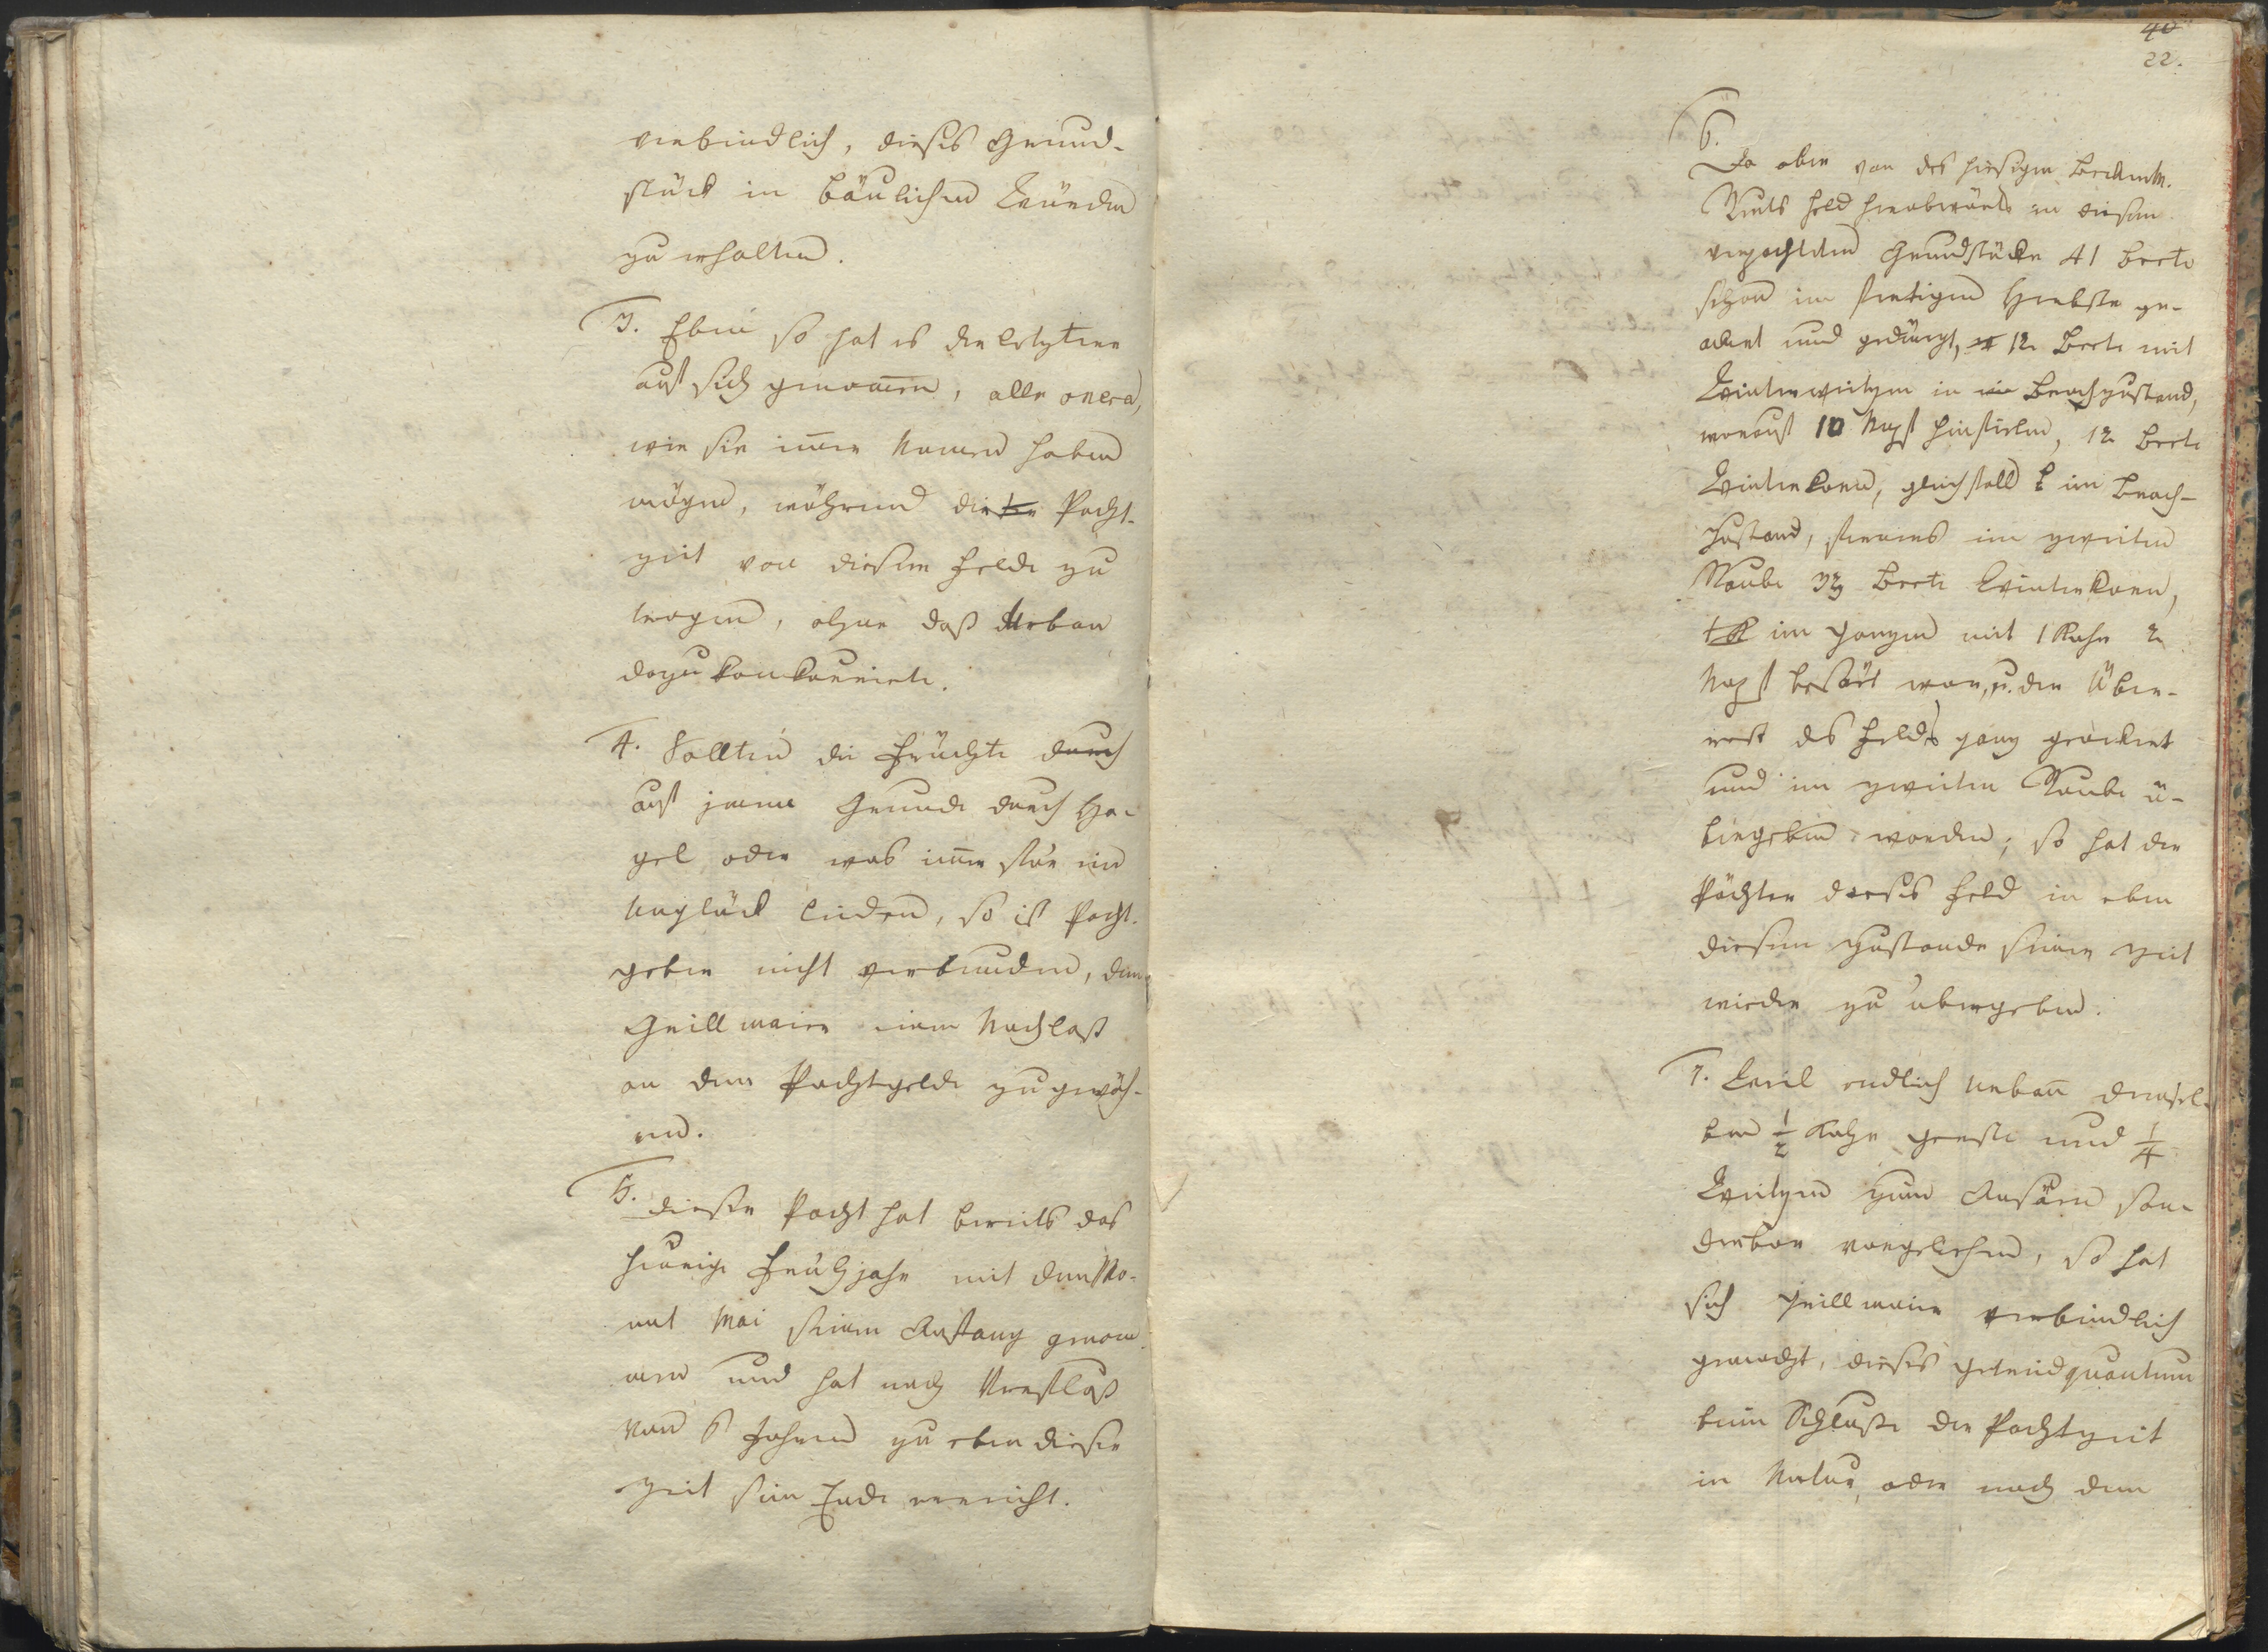 verbindlich, dieses Grund-
stück in bäulichen Würden
zu erhalten.
3. Eben so hat es der letztere
auf sich genom̄en, alle onera,
wie sie im̄er Namen haben
mögen, während der Pacht-
zeit von diesem Felde zu
tragen, ohne daß Urban
dazu konkurrirte.
4. Sollten die Früchte durch
auf jenem Grunde durch Ha-
gel oder was im̄er für ein
Unglück leiden, so ist Pacht-
geber nicht verbunden, dem
Grillmaier einen Nachlaß
an dem Pachtgelde zu gewäh-
ren.
5. Dieser Pacht hat bereits das
heurige Frühjahr mit dem Mo-
nat Mai seinen Anfang genom-
men und hat nach Verfluß
von 6 Jahren zu eben dieser
Zeit sein Ende erreicht.
40
22.
6.
Da aber von des hiesigen
Feld herabwärts an diesem
verpachteten Grundstücke 41 Beete
schon im heurigen Herbste ge-
ackert und gedüngt, 12 Beete mit
Winterweitzen in Brachzustand,
worauf 10 Napf hinfielen, 12 Beete
Winterkorn, gleichfalls im Brach-
zustand, ferners im zweiten
Raube 33 Beete Winterkorn,
im ganzen mit 1 Kahr 2
Napf besäet war, u. der Über-
rest des Felds ganz geackert
und im zweiten Raube ü-
bergeben worden; so hat der
Pächter dieses Feld in eben
diesem Zustande seiner Zeit
wieder zu übergeben.
7. Weil endlich Urban̄ demsel-
ben 1/2 Kahr Gerste und 1/4
Weitzen zum Ansäen son-
derbar vorgeliehen, so hat
sich Grillmaier verbindlich
gemacht, dieses Getreidquantum
beim Schluße der Pachtzeit
in Natur, oder nach dem